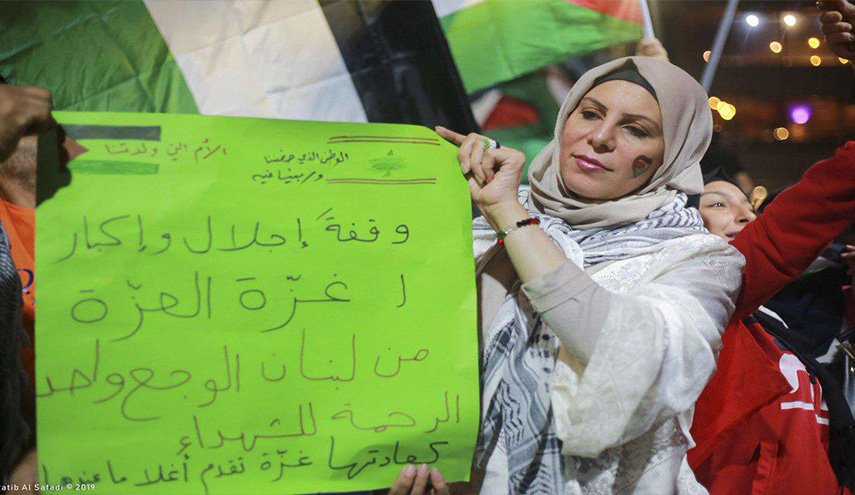 الأم التي ولدتنا
الوطن الذي حضننا
وربينا فيه
وقفةً إجلال وإكبار
ا غزّة العزّة
من لبنان الوجع واحد
الرحمة للشهداء
كعادتها غزّة تقدم أغلا ما عندها
atib Al Safadi © 2019